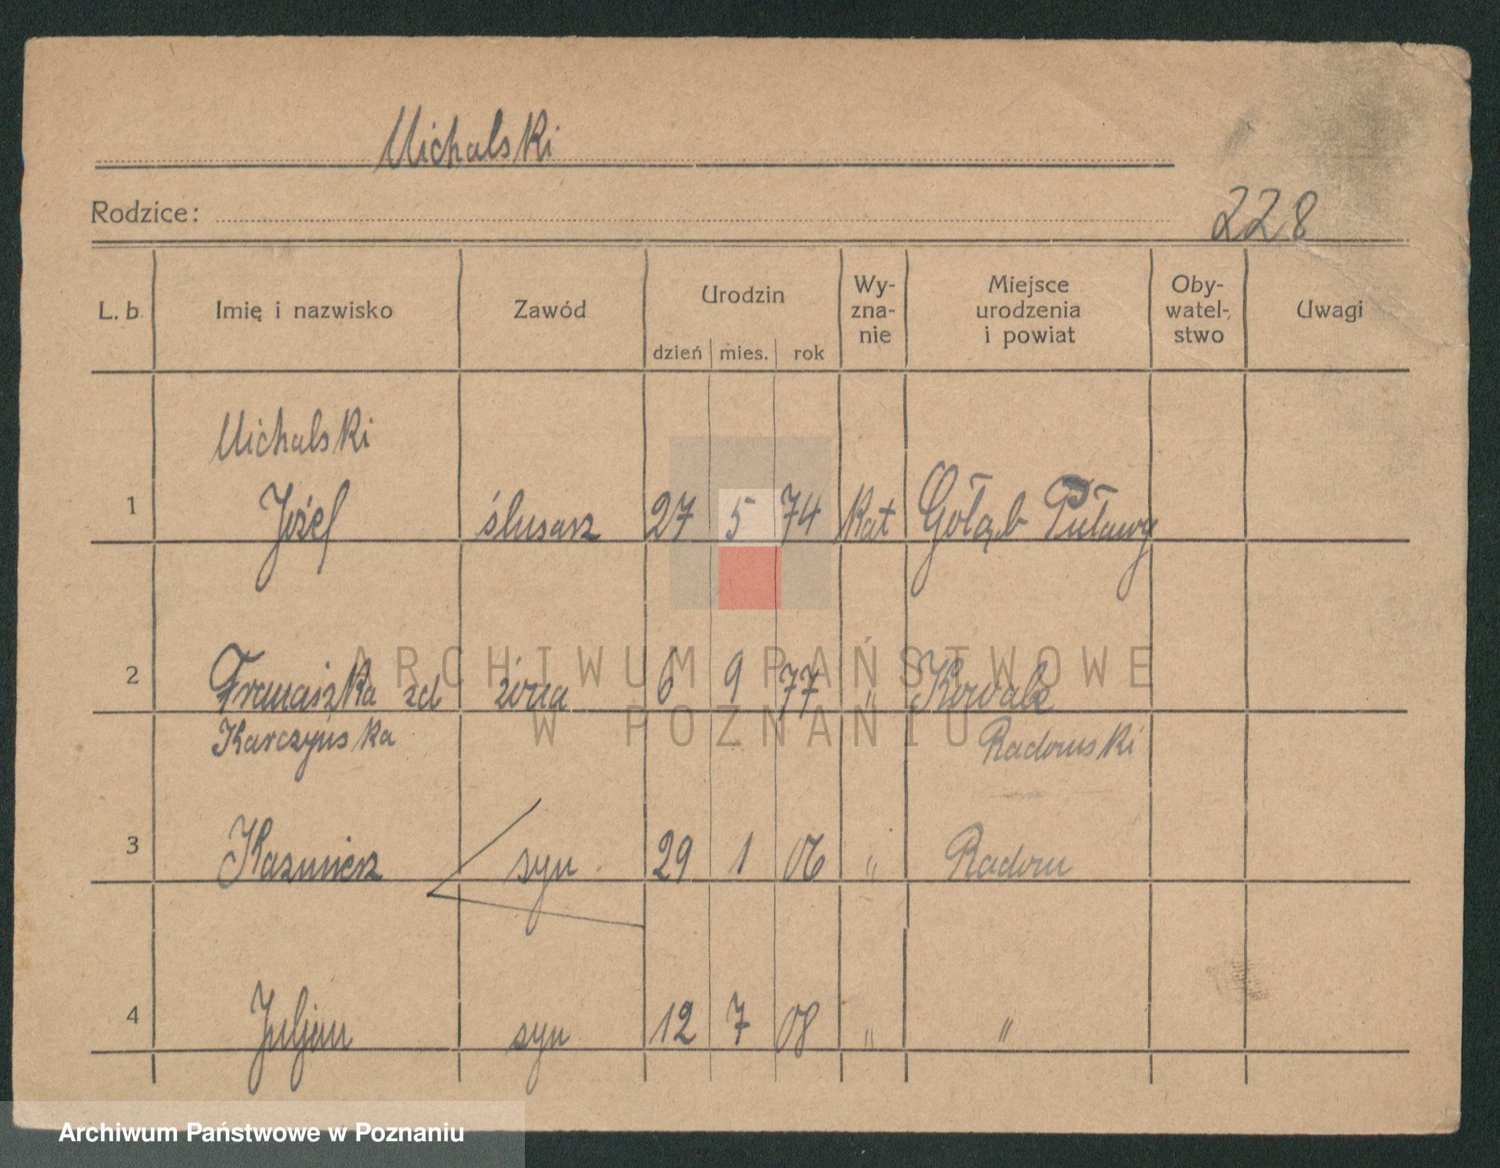 Michalski
Rodzice:
228
L. b. Imię i nazwisko Zawód Urodzin Wy-zna-nie Miejsce urodzenia i powiat Oby-watel-stwo Uwagi
dzień mies. rok
Michalski
1 Józef ślusarz 27 5 74 kat Gołąb Puławy
2 Franciszka zd żona 6 9 77 " Kowala
Karczyńska Radomski
3 Kazimierz syn 29 1 06 " Radom
4 Juljan syn 12 7 08 " "
ARCHIWUM PAŃSTWOWE
W POZNANIU
Archiwum Państwowe w Poznaniu